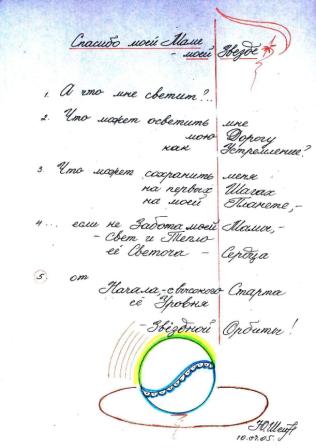 Спасибо моей Маме
- моей Звезде
1. А что мне светит?...
2. Что может осветить мне
мою Дорогу
как Устремление?
3. Что может сохранить меня
на первых Шагах
на моей Планете,-
4... если не Забота моей Мамы,-
- Свет и Тепло
её Светоча - Сердца
5. от
Начала,-высокого Старта
её Уровня
- Звёздной Орбиты!
10.07.05.